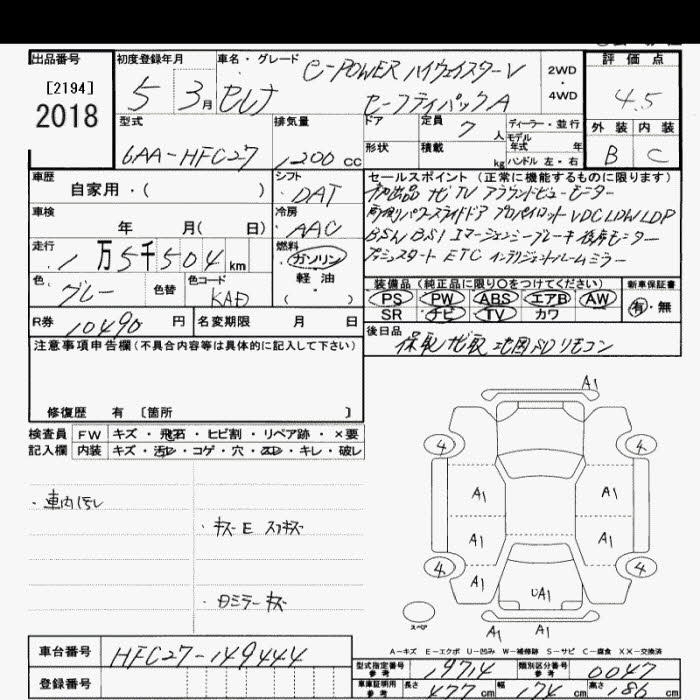 出品番号
[2194]
2018
初度登録年月
5 3月
車名・グレード
e-POWER ハイウェイスターV
セレナ セーフティパックA
2WD
・
4WD
評価点
4.5
外装 内装
B C
型式
6AA-HFC27
排気量
1200 cc
ドア
形状
定員
7人
積載
kg
ディーラー・並行
モデル
年式 年
ハンドル 左・右
車歴
自家用・( )
シフト
DAT
車検
年 月( 日)
冷房
AAC
走行
1万5千504km
燃料
ガソリン
軽油
( )
色
グレー
色替
色コード
KAD
R券
10490円
名変期限 月 日
セールスポイント (正常に機能するものに限ります)
ナビ TV アラウンドビューモニター
両側パワースライドドア プロパイロット VDC LDW LDP
BSW BSI エマージェンシーブレーキ 後席モニター
ETC インテリジェントルームミラー
装備品(純正品に限り○をつけてください)
PS PW ABS エアB AW
SR ナビ TV カワ
新車保証書
有・無
後日品
保取 ナビ取 地図SD リモコン
注意事項申告欄(不具合内容等は具体的に記入して下さい)
修復歴 有 〔箇所 〕
検査員 FW キズ・飛石・ヒビ割・リペア跡・×要
記入欄 内装 キズ・汚レ・コゲ・穴・スレ・キレ・破レ
・車内汚レ
・キズE スリキズ
・Dミラーキズ
A1
4 4
A1 A1
A1 A1
4 4
A1 UA1 A1
A1
スペア
A-キズ E-エクボ U-凹み W-補修跡 S-サビ C-腐食 XX-交換済
車台番号
HFC27-149444
登録番号
型式指定番号 参考
19714
類別区分番号 参考
0047
車庫証明用 参考
長さ 477cm 幅 174cm 高さ 86cm